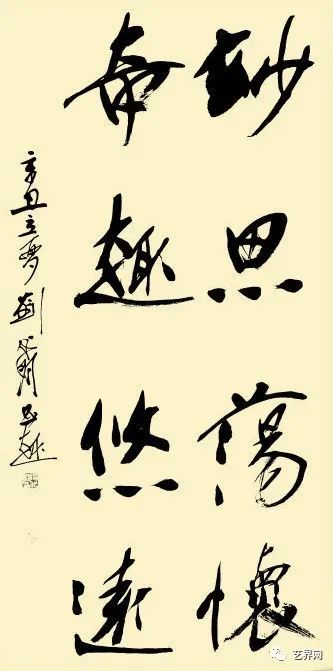 妙思蕩懷
奇趣悠遠
辛丑立夏劍
艺界网